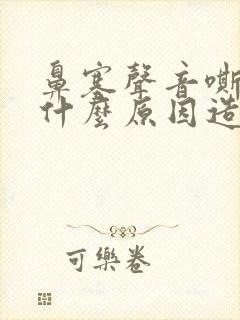 鼻塞聲音嘶
什麼原因造
可樂卷